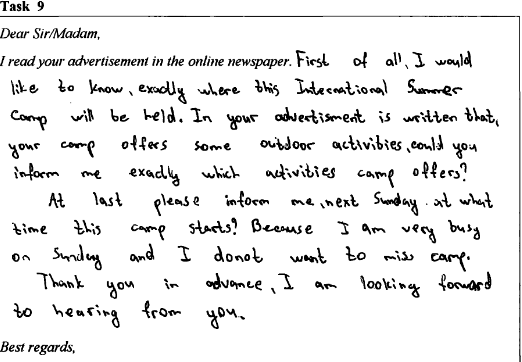 Task 9
Dear Sir/Madam,
I read your advertisement in the online newspaper. First of all, I would
like to know, exactly where this International Summer
Camp will be held. In your advertisment is written that,
your camp offers some outdoor activities, could you
inform me exactly which activities camp offers?
At last please inform me, next Sunday at what
time this camp starts? Because I am very busy
on Sunday and I donot want to miss camp.
Thank you in advance, I am looking forward
to hearing from you.
Best regards,